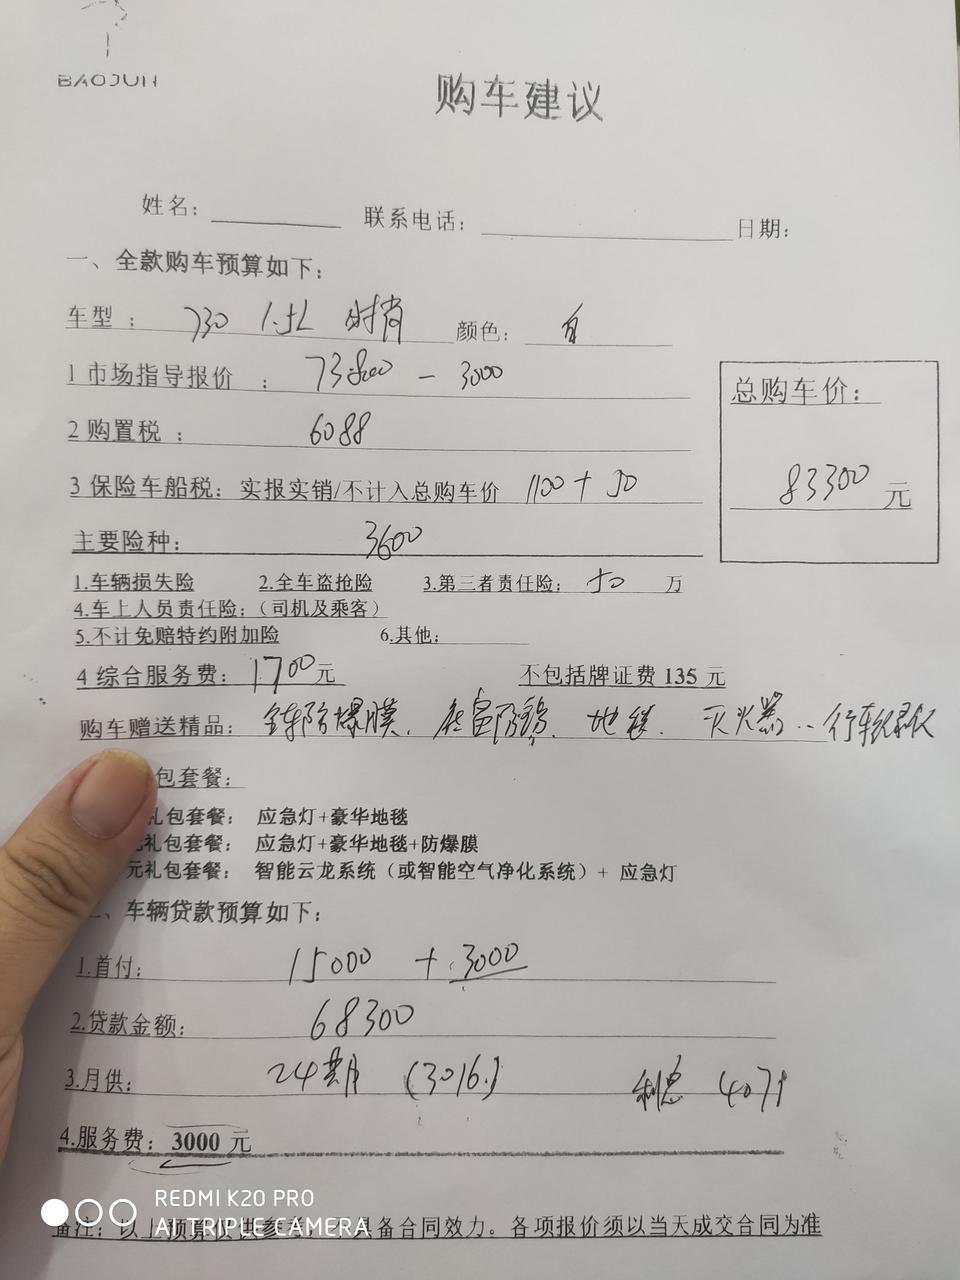 BAOJUN
购车建议
姓名： 联系电话： 日期：
一、全款购车预算如下：
车型： 730 1.5L 时尚 颜色：
1 市场指导报价 ： 73800 - 3000
总购车价：
2 购置税 ： 6088
3 保险车船税：实报实销/不计入总购车价 1100 + 50
83300 元
主要险种： 3600
1.车辆损失险 2.全车盗抢险 3.第三者责任险： 50 万
4.车上人员责任险：（司机及乘客）
5.不计免赔特约附加险 6.其他：
4 综合服务费： 1700 元 不包括牌证费 135 元
购车赠送精品： 全车防爆膜、底盘防锈、地毯、灭火器、行车记录仪
包套餐：
礼包套餐： 应急灯+豪华地毯
元礼包套餐： 应急灯+豪华地毯+防爆膜
元礼包套餐： 智能云龙系统（或智能空气净化系统）+ 应急灯
二、车辆贷款预算如下：
1.首付： 15000 + 3000
2.贷款金额： 68300
3.月供： 24期 (3016.) 利息 4071
4.服务费：3000 元
REDMI K20 PRO
AI TRIPLE CAMERA
备注：以上预算仅供参考，不具备合同效力。各项报价须以当天成交合同为准